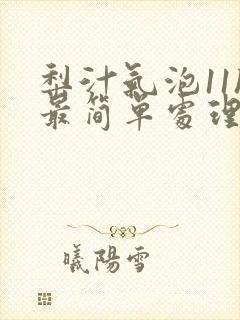 梨汁氣泡11
最简單處理
曦陽雪